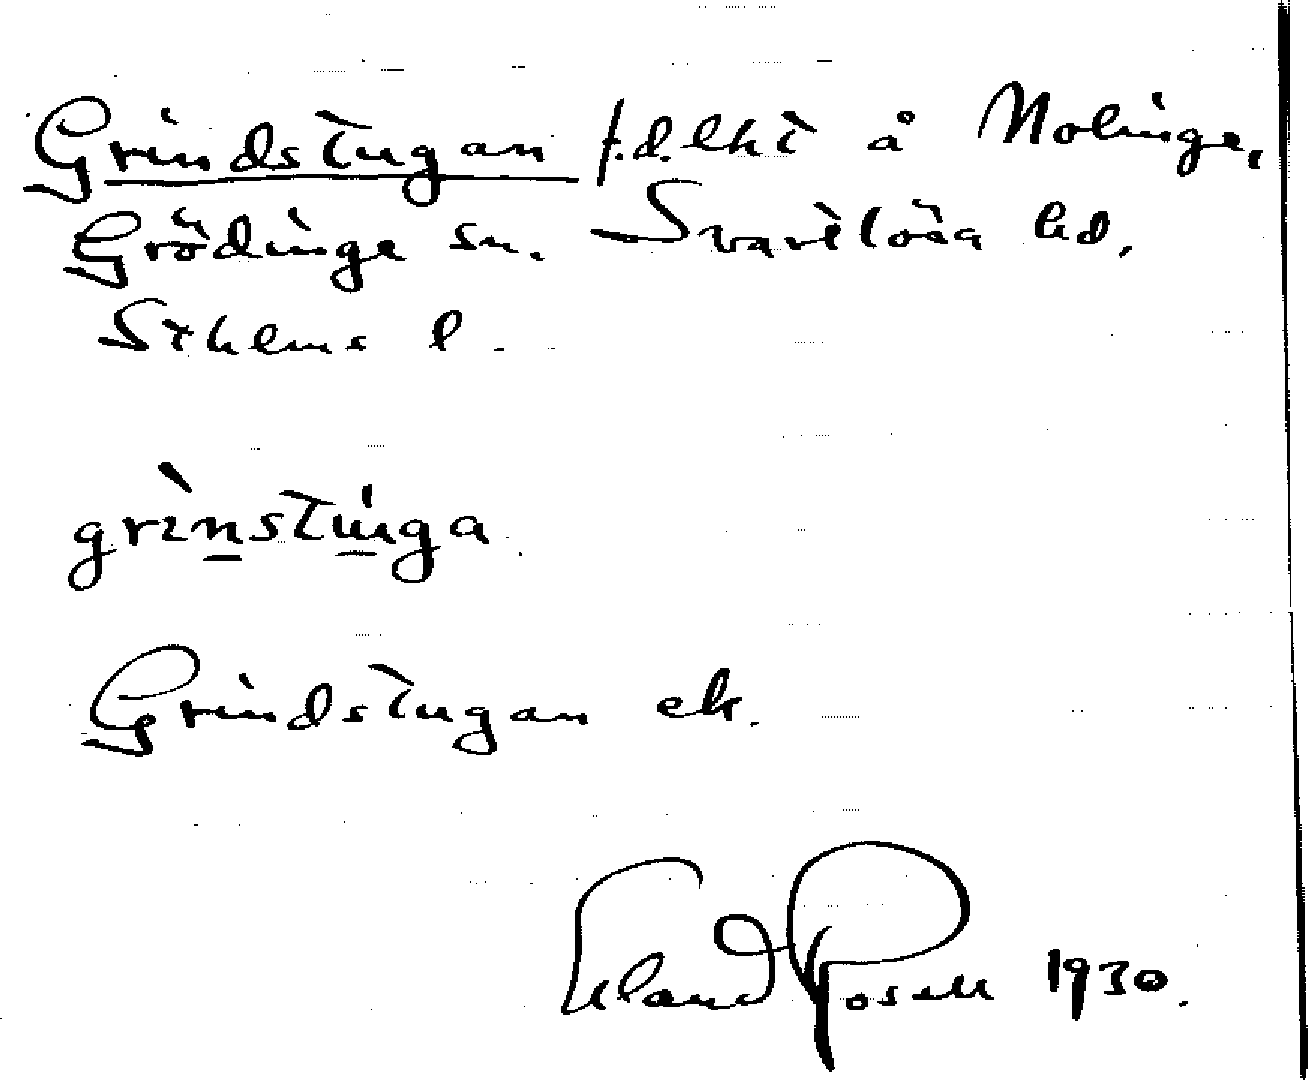 Grindstugan f.d. lht å Nolinge,
Grödinge sn. Svartlösa hd.
Sthlms l.
grìnstuga
Grindstugan ek.
Erland Rosell 1930.